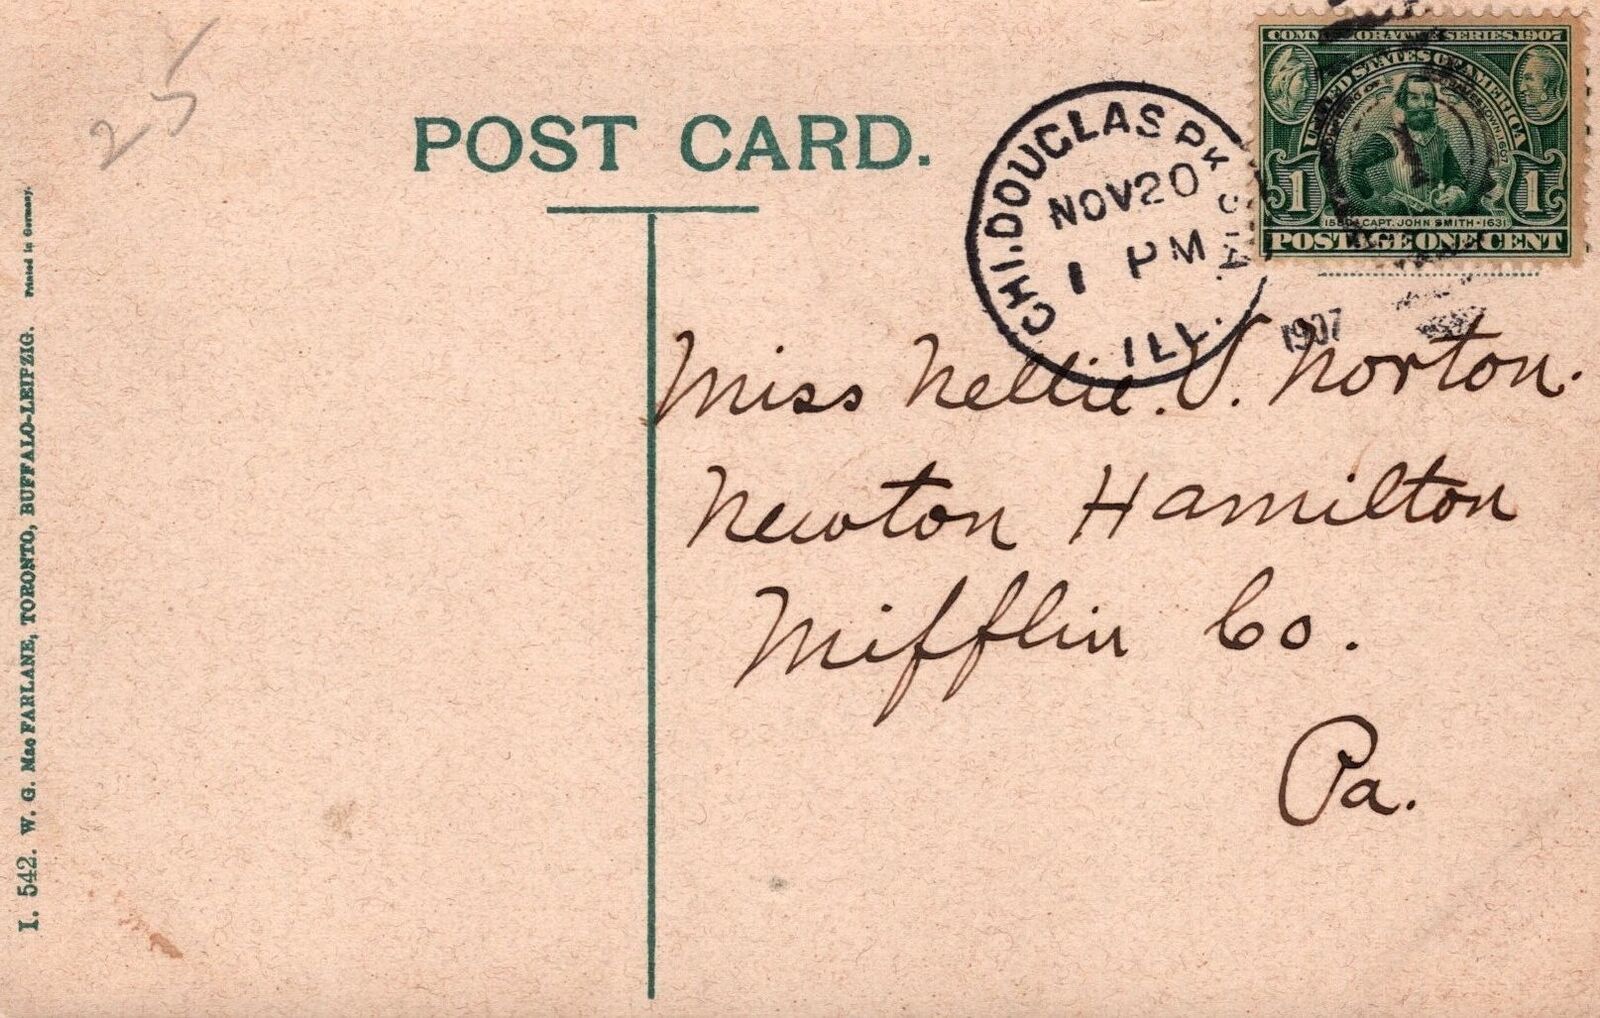 25
POST CARD.
COMMEMORATIVE SERIES 1907
UNITED STATES OF AMERICA
FOUNDING OF JAMESTOWN 1607
1 1
1580 CAPT. JOHN SMITH • 1631
POSTAGE ONE CENT
CHI. DOUGLAS PK STA.
NOV 20
1 PM
ILL.
1907
Miss Nellie. V. Norton.
Newton Hamilton
Mifflin Co.
Pa.
I. 542. W. G. Mac FARLANE, TORONTO, BUFFALO-LEIPZIG. Printed in Germany.